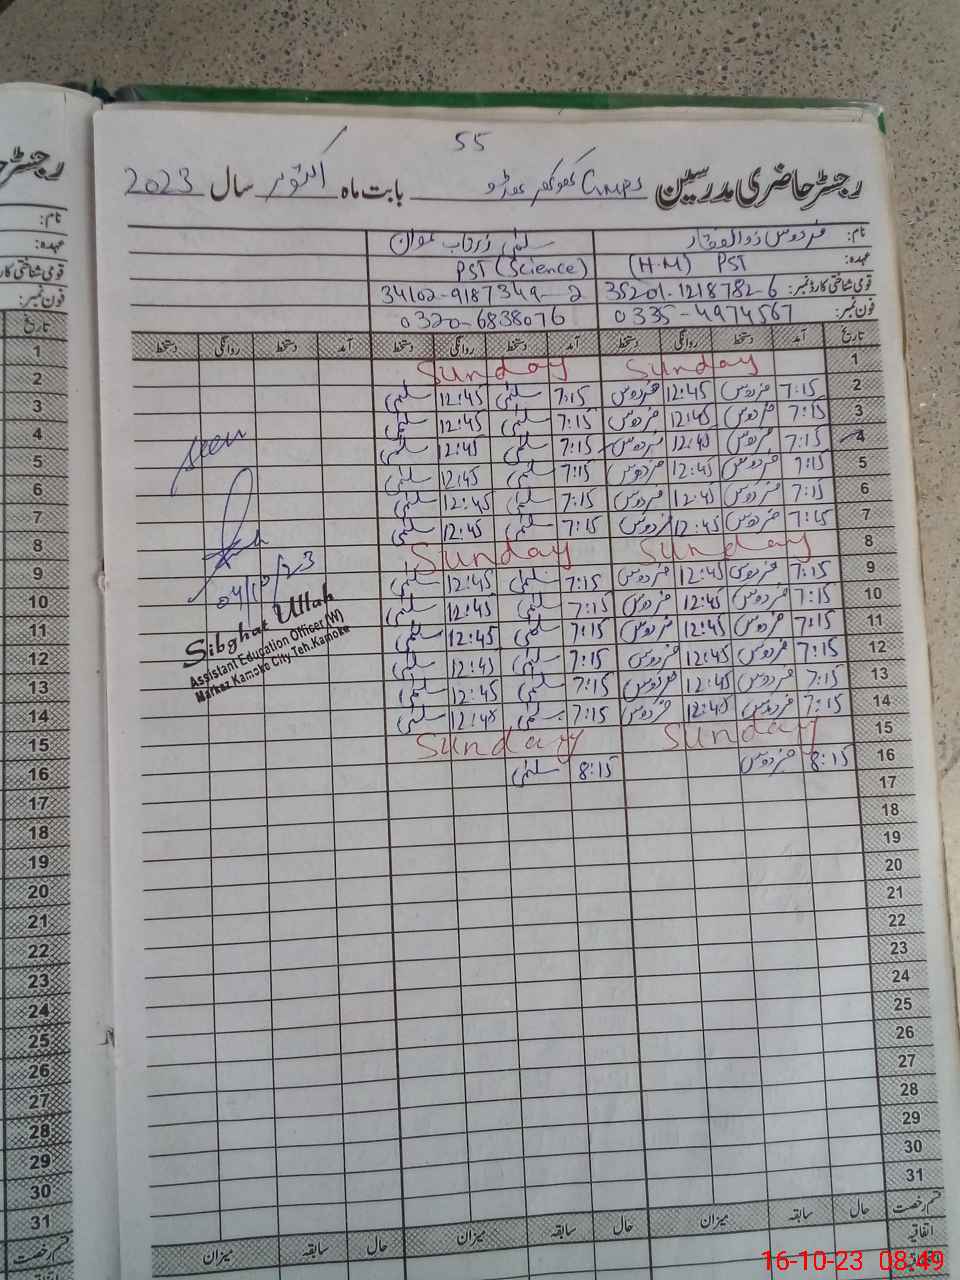 55
رجسٹر حاضری مدرسین GMPS کھوکھر بابت ماہ اکتوبر سال 2023
نام: فردوس ذوالفقار سلمیٰ
عہدہ: PST (H.M) PST (Science)
قومی شناختی کارڈ نمبر: 35201-1218782-6 34102-9187349-2
فون نمبر: 0335-4974567 0320-6838076
تاریخ آمد دستخط روانگی دستخط آمد دستخط روانگی دستخط آمد دستخط روانگی دستخط
1 Sunday Sunday
2 7:15 فردوس 12:45 فردوس 7:15 سلمیٰ 12:45 سلمیٰ
3 7:15 فردوس 12:45 فردوس 7:15 سلمیٰ 12:45 سلمیٰ
4 7:15 فردوس 12:45 فردوس 7:15 سلمیٰ 12:45 سلمیٰ
5 7:15 فردوس 12:45 فردوس 7:15 سلمیٰ 12:45 سلمیٰ
6 7:15 فردوس 12:45 فردوس 7:15 سلمیٰ 12:45 سلمیٰ
7 7:15 فردوس 12:45 فردوس 7:15 سلمیٰ 12:45 سلمیٰ
8 Sunday Sunday
9 7:15 فردوس 12:45 فردوس 7:15 سلمیٰ 12:45 سلمیٰ
10 7:15 فردوس 12:45 فردوس 7:15 سلمیٰ 12:45 سلمیٰ
11 7:15 فردوس 12:45 فردوس 7:15 سلمیٰ 12:45 سلمیٰ
12 7:15 فردوس 12:45 فردوس 7:15 سلمیٰ 12:45 سلمیٰ
13 7:15 فردوس 12:45 فردوس 7:15 سلمیٰ 12:45 سلمیٰ
14 7:15 فردوس 12:45 فردوس 7:15 سلمیٰ 12:45 سلمیٰ
15 Sunday Sunday
16 8:15 فردوس 8:15 سلمیٰ
17
18
19
20
21
22
23
24
25
26
27
28
29
30
31
قسم رخصت حال سابقہ میزان حال سابقہ میزان حال سابقہ میزان
اتفاقیہ
seen
Sibghat Ullah
Assistant Education Officer (W)
Markaz Kamoke City Teh.Kamoke
رجسٹر
نام:
عہدہ:
قومی شناختی کارڈ
فون نمبر:
تاریخ
1
2
3
4
5
6
7
8
9
10
11
12
13
14
15
16
17
18
19
20
21
22
23
24
25
26
27
28
29
30
31
قسم رخصت
16-10-23 08:49